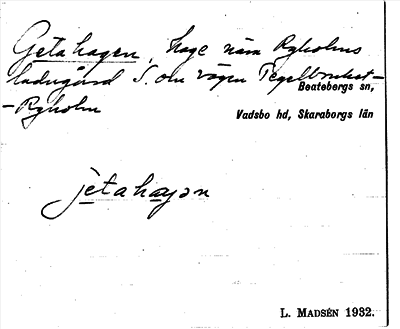 Getahagen, hage nära Ryholms
ladugård S. om vägen Tegelbruket-
-Ryholm
Beatebergs sn,
Vadsbo hd, Skaraborgs län
jetahagən
L. MADSÉN 1932.